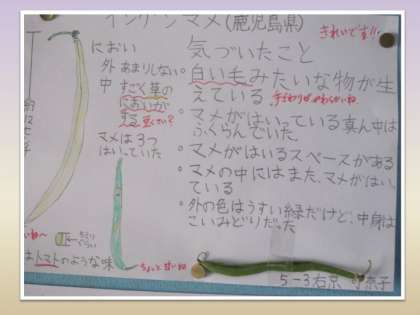 インゲンマメ(鹿児島県)
きれいです!!
におい
外 あまりしない。
中 すごく草の
においが
する
マメは3つ
はいっていた
気づいたこと
白い毛みたいな物が生
えている
。マメがはいっている真ん中は
ふくらんでいた。
。マメがはいるスペースがある
。マメの中にはまた、マメがはい
ている
。外の色はうすい緑だけど、中身は
こいみどりだった
はトマトのような味
ちょっと甘いね
5-3右京